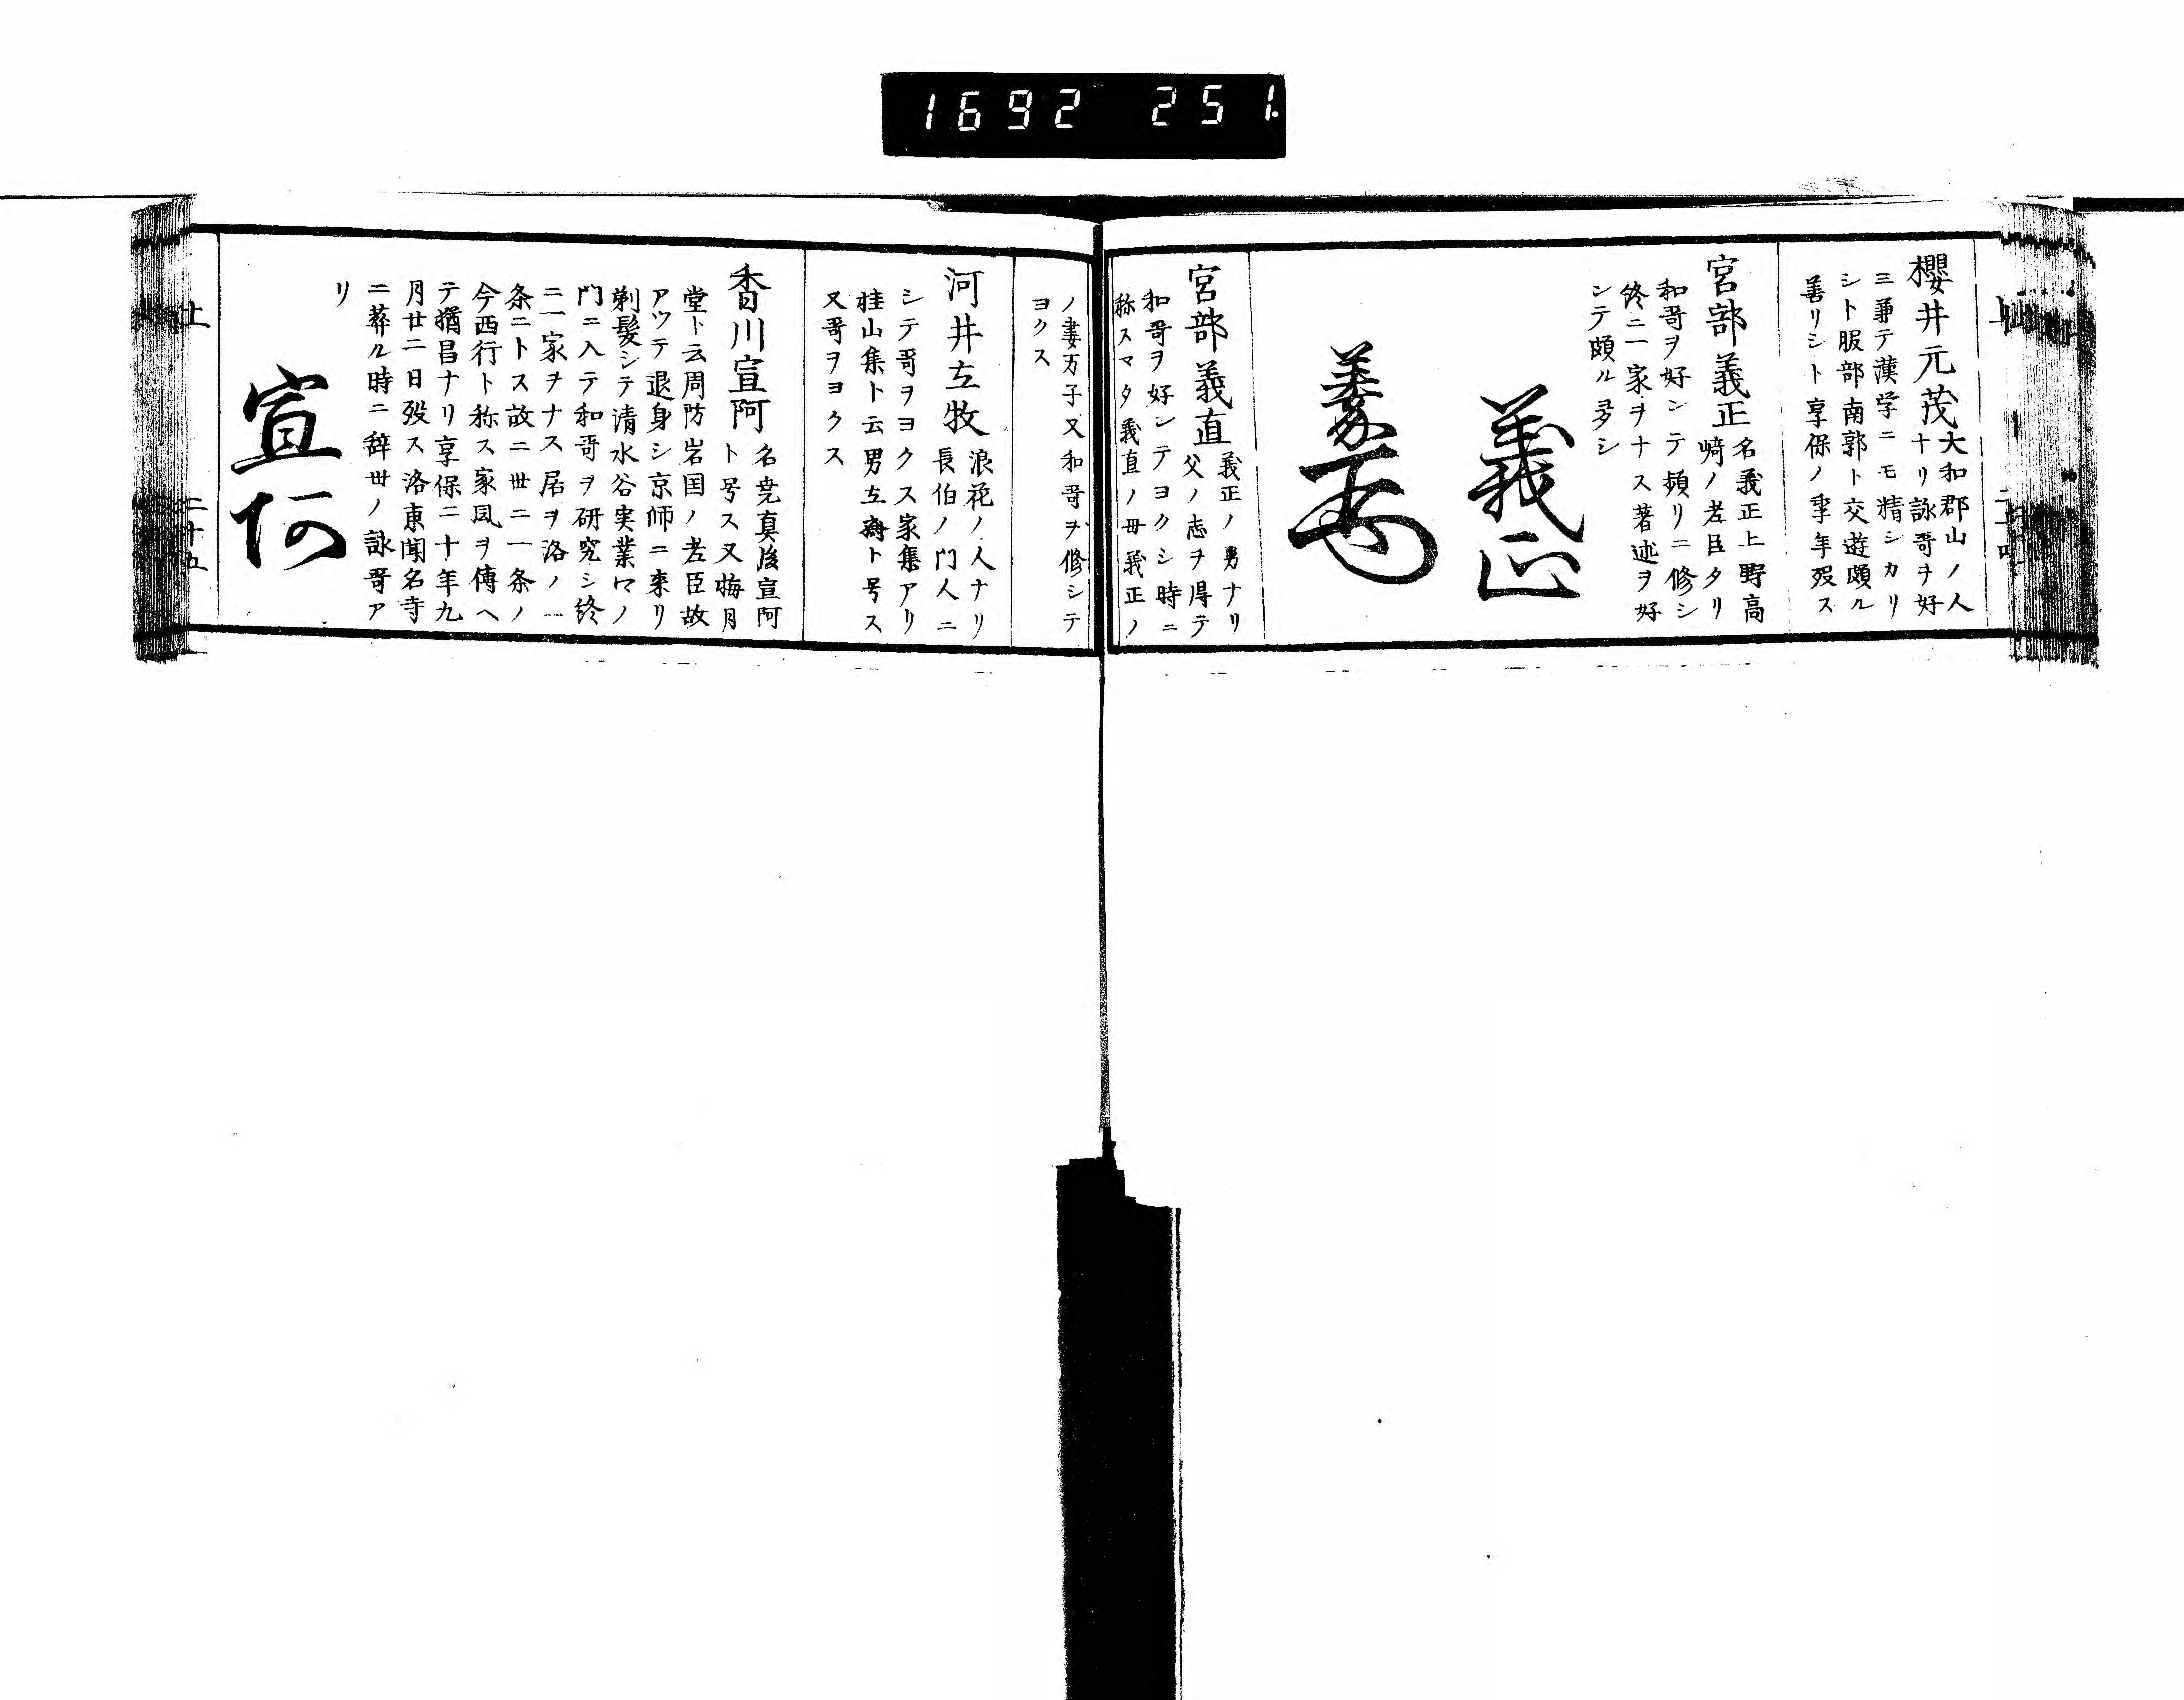 1692 251
上
櫻井元茂 大和郡山ノ人
ナリ詠哥ヲ好
三兼テ漢学ニモ精シカリ
シト服部南郭ト交遊頗ル
善リシト享保ノ季年歿ス
宮部義正 名義正上野高
﨑ノ老臣タリ
和哥ヲ好ンテ頻リニ修シ
終ニ一家ヲナス著述ヲ好
ンテ頗ル多シ
義正
宮部義直 義正ノ男ナリ
父ノ志ヲ得テ
和哥ヲ好ンテヨクシ時ニ
称スマタ義直ノ母義正ノ
ノ妻万子又和哥ヲ修シテ
ヨクス
河井立牧 浪花ノ人ナリ
長伯ノ門人ニ
シテ哥ヲヨクス家集アリ
桂山集ト云男立斎ト号ス
又哥ヲヨクス
香川宣阿 名尭真後宣阿
ト号ス又梅月
堂ト云周防岩国ノ老臣故
アツテ退身シ京師ニ来リ
剃髪シテ清水谷実業卿ノ
門ニ入テ和哥ヲ研究シ終
ニ一家ヲナス居ヲ洛ノ一
条ニトス故ニ世ニ一条ノ
今西行ト称ス家風ヲ傳ヘ
テ猶昌ナリ享保二十年九
月廿二日歿ス洛東聞名寺
ニ葬ル時ニ辞世ノ詠哥ア
リ
宣阿
上
二十五